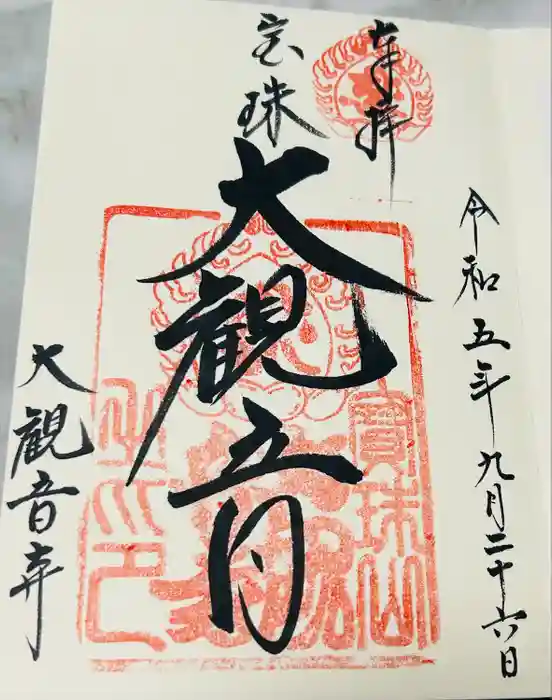 奉拝
令和五年九月二十六日
宝珠
大観音
大観音寺
寶珠山